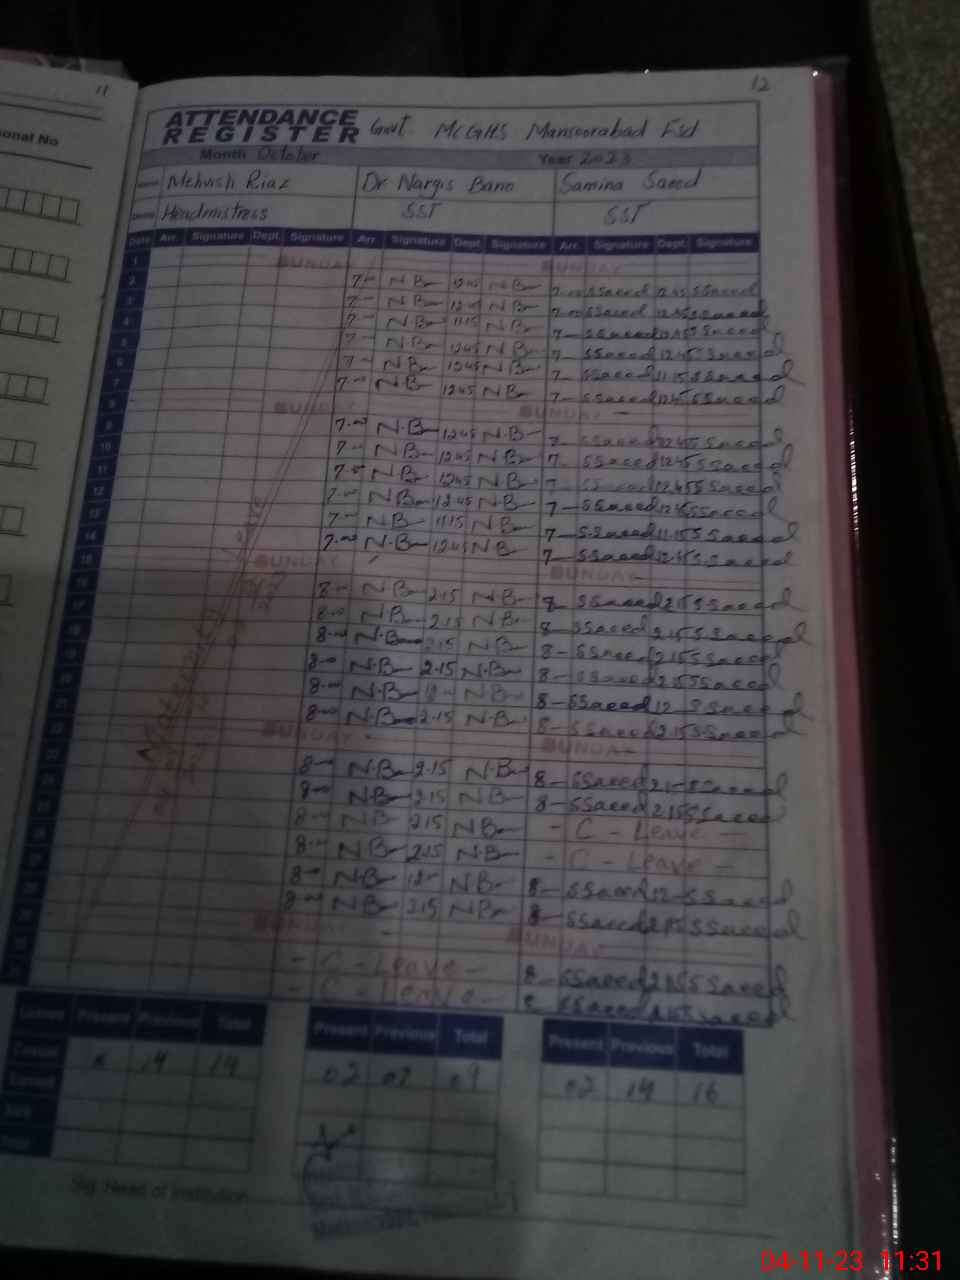 11
12
onal No
ATTENDANCE
REGISTER Govt. MCGHS Mansoorabad Fsd
Month October Year 2023
Mehvish Riaz Dr Nargis Bano Samina Saeed
Headmistress SST SST
Date Arr. Signature Dept. Signature Arr. Signature Dept. Signature Arr. Signature Dept. Signature
1 SUNDAY SUNDAY
2 7-00 N-B 12 45 N-B 7-00 SSaeed 12.45 SSaeed
3 7- N-B 12 45 N-B 7-00 SSaeed 12.45 SSaeed
4 7- N-B N-B 7- SSaeed 12.45 SSaeed
5 7- N-B 12 45 N-B 7- SSaeed 12.45 SSaeed
6 7- N-B 12 45 N-B 7- SSaeed 11.15 SSaeed
7 7-00 N-B 12 45 N-B 7- SSaeed 12.45 SSaeed
8 SUNDAY SUNDAY
9 7-00 N-B 12 45 N-B 7- SSaeed 12.45 SSaeed
10 7- N-B 12 45 N-B 7- SSaeed 12.45 SSaeed
11 7-00 N-B 12 45 N-B 7 SSaeed 12.45 SSaeed
12 7-00 N-B 12 45 N-B 7- SSaeed 12.45 SSaeed
13 7- N-B 11.15 N-B 7- SSaeed 11.15 SSaeed
14 7-00 N-B 12 45 N-B 7- SSaeed 12.45 SSaeed
15 SUNDAY SUNDAY
16 8-00 N-B 2.15 N-B 8- SSaeed 2.15 SSaeed
17 8-00 N-B 2.15 N-B 8- SSaeed 2.15 SSaeed
18 8-00 N-B 2.15 N-B 8- SSaeed 2.15 SSaeed
19 8-00 N-B 2.15 N-B 8- SSaeed 2.15 SSaeed
20 8-00 N-B 12- N-B 8- SSaeed 12- SSaeed
21 8-00 N-B 2.15 N-B 8- SSaeed 2.15 SSaeed
22 SUNDAY SUNDAY
23 8-00 N-B 2.15 N-B 8- SSaeed SSaeed
24 8-00 N-B 2.15 N-B 8- SSaeed 2.15 SSaeed
25 8-00 N-B 2.15 N-B - C - Leave -
26 8-00 N-B 2.15 N-B - C - Leave -
27 8-00 N-B 12- N-B 8- SSaeed 12- SSaeed
28 8-00 N-B 2.15 N-B 8- SSaeed 2.15 SSaeed
29 SUNDAY SUNDAY
30 - C - Leave - 8- SSaeed 2.15 SSaeed
31 - C - Leave - 8 SSaeed 2.15 SSaeed
Leaves Present Previous Total Present Previous Total Present Previous Total
Casual × 14 14 02 07 09 02 14 16
Earned
Sick
Total
Sig. Head of Institution
04-11-23 11:31